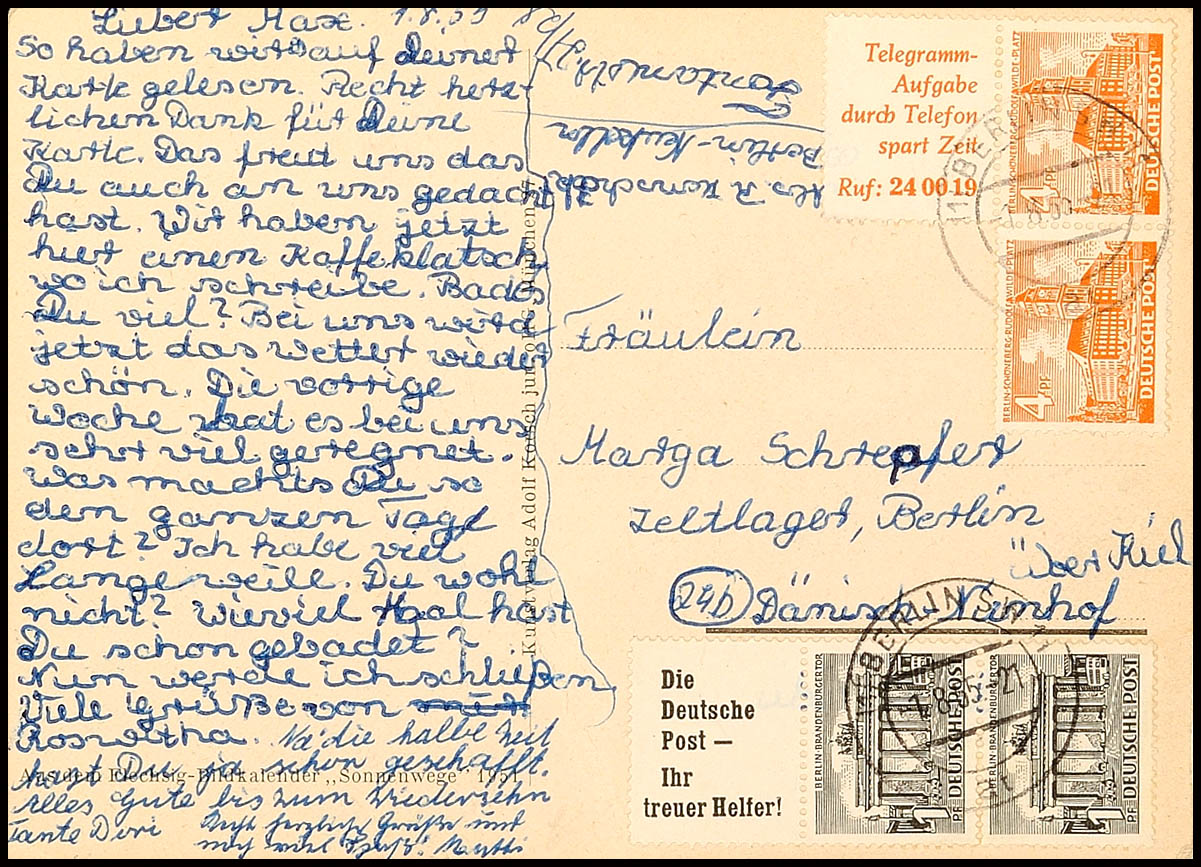 Liebe Max. 1.8.53
So haben wir auf deiner
Karte gelesen. Recht herz-
lichen Dank für deine
Karte. Das freut uns das
Du auch an uns gedacht
hast. Wir haben jetzt
hier einen Kaffeklatsch
wo ich schreibe. Bades
Du viel? Bei uns wird
jetzt das Wetter wieder
schön. Die vorrige
Woche hat es bei uns
sehr viel geregnet.
Was machts Du so
den ganzen Tag
dort? Ich habe viel
Langeweile. Du wohl
nicht? Wieviel Mal hast
Du schon gebadet?
Nun werde ich schließen.
Viele Grüße von
Roswitha. Na die halbe Zeit
hast Du ja schon geschafft.
Alles Gute bis zum Wiedersehn
Tante Dori
Recht herzliche Grüße und
noch viel Spaß! Mutti
Aus dem Flechsig-Bildkalender „Sonnenwege" 1951
Kunstverlag Adolf Korsch junior KG, München
Abs. R.
Berlin-Neukölln
Telegramm-
Aufgabe
durch Telefon
spart Zeit
Ruf: 24 00 19
BERLIN-SCHÖNEBERG·RUDOLF-WILDE-PLATZ
4 PF
DEUTSCHE POST
BERLIN-SCHÖNEBERG·RUDOLF-WILDE-PLATZ
4 PF
DEUTSCHE POST
BERLIN SW
Fräulein
Marga Schrepfer
Zeltlager, Berlin
über Kiel
24b Dänisch-Nienhof
Die
Deutsche
Post —
Ihr
treuer Helfer!
BERLIN·BRANDENBURGER TOR
1 PF
DEUTSCHE POST
BERLIN·BRANDENBURGER TOR
1 PF
DEUTSCHE POST
BERLIN SW